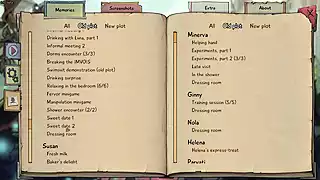 Memories
Screenshots
Extra
About
All Old plot New plot
Drinking with Luna, part 1
Informal meeting 2
Dorms encounter (3/3)
Breaking the IMVOIS
Swimsuit demonstration (old plot)
Drinking surprise
Relaxing in the bedroom (6/6)
Fervor minigame
Manipulation minigame
Shower encounter (2/2)
Sweet date 1
Sweet date 2
Dressing room
Susan
Fresh milk
Baker's delight
All Old plot New plot
Minerva
Helping hand
Experiments, part 1
Experiments, part 2 (3/3)
Late visit
In the shower
Dressing room
Ginny
Training session (5/5)
Dressing room
Nola
Dressing room
Helena
Helena's express-treat
Parvati